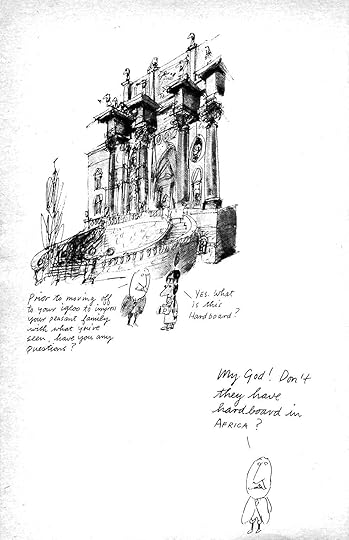 Prior to moving off
to your igloo to impress
your peasant family
with what you've
seen, have you any
questions?
Yes. What
is this
Hardboard?
My God! Don't
they have
hardboard in
AFRICA?